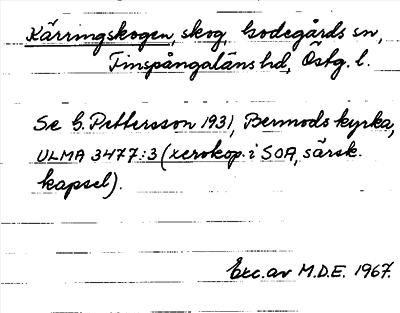 Kärringskogen, skog, Godegårds sn,
Finspångaläns hd, Östg. l.
Se G. Pettersson 1931, Bermods kyrka,
ULMA 3477:3 (xerokop. i SOA, särsk.
kapsel).
Exc. av M.D.E. 1967.